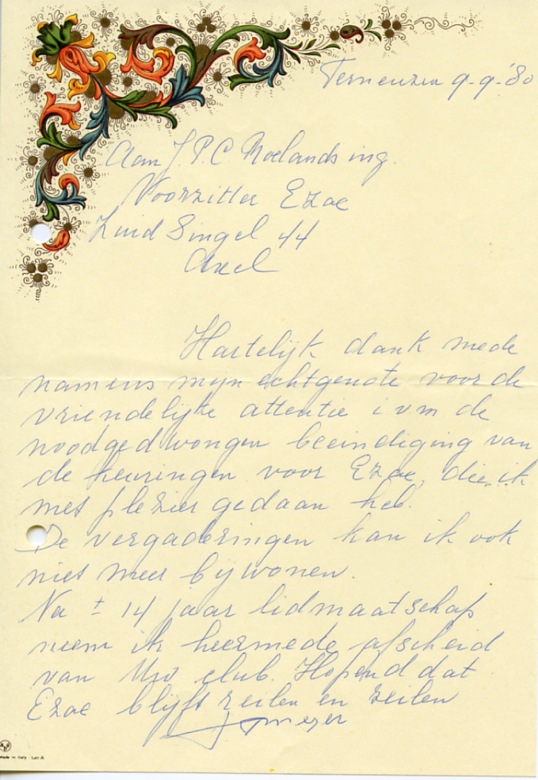 Terneuzen 9-9-'80
Aan J.P.C Moelands ing.
Voorzitter Ezae
Zuid Singel 44
Axel
Hartelijk dank mede
namens mijn echtgenote voor de
vriendelijke attentie ivm de
noodgedwongen beeindiging van
de keuringen voor Ezae, die ik
met plezier gedaan heb.
De vergaderingen kan ik ook
niet meer bywonen.
Na ± 14 jaar lidmaatschap
neem ik hiermede afscheid
van Uw club. Hopend dat
Ezae blijft zeilen en zeilen